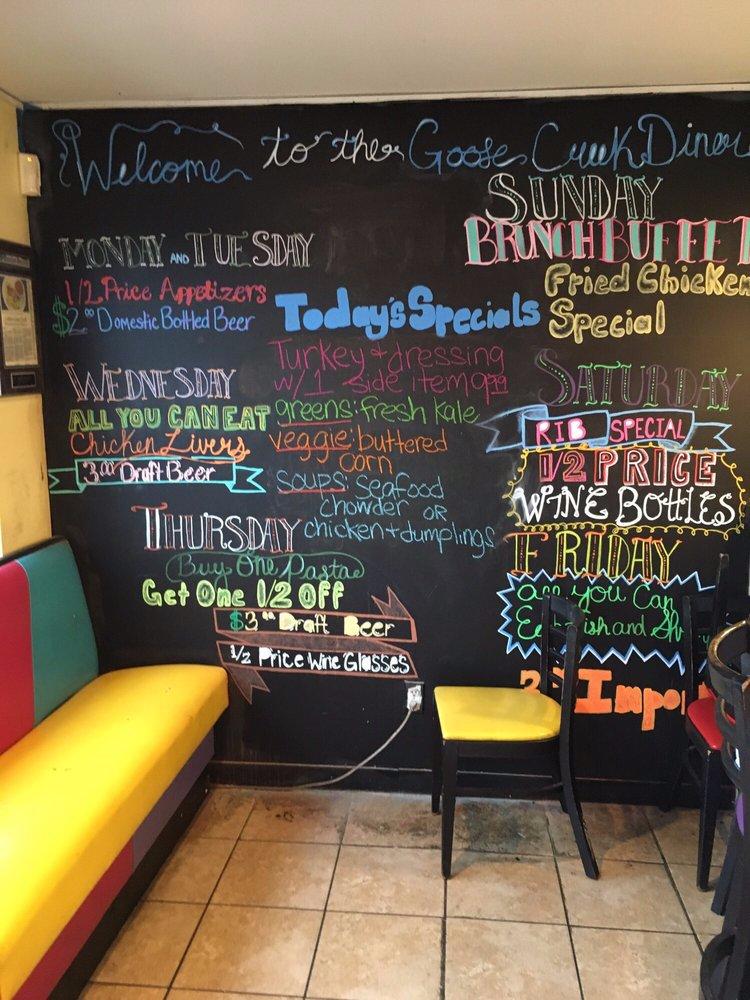 Welcome to the Goose Creek Diner
MONDAY AND TUESDAY
1/2 Price Appetizers
$2.00 Domestic Bottled Beer
WEDNESDAY
ALL YOU CAN EAT
Chicken Livers
3.00 Draft Beer
THURSDAY
Buy One Pasta
Get One 1/2 Off
$3.00 Draft Beer
1/2 Price Wine Glasses
Today's Specials
Turkey + dressing
w/ 1 side item
greens: fresh kale
veggie: buttered
corn
soups: seafood
chowder or
chicken + dumplings
SUNDAY
BRUNCH BUFFET
Fried Chicken
Special
SATURDAY
RIB SPECIAL
1/2 PRICE
WINE BOTTLES
FRIDAY
all you Can
Eat Fish and